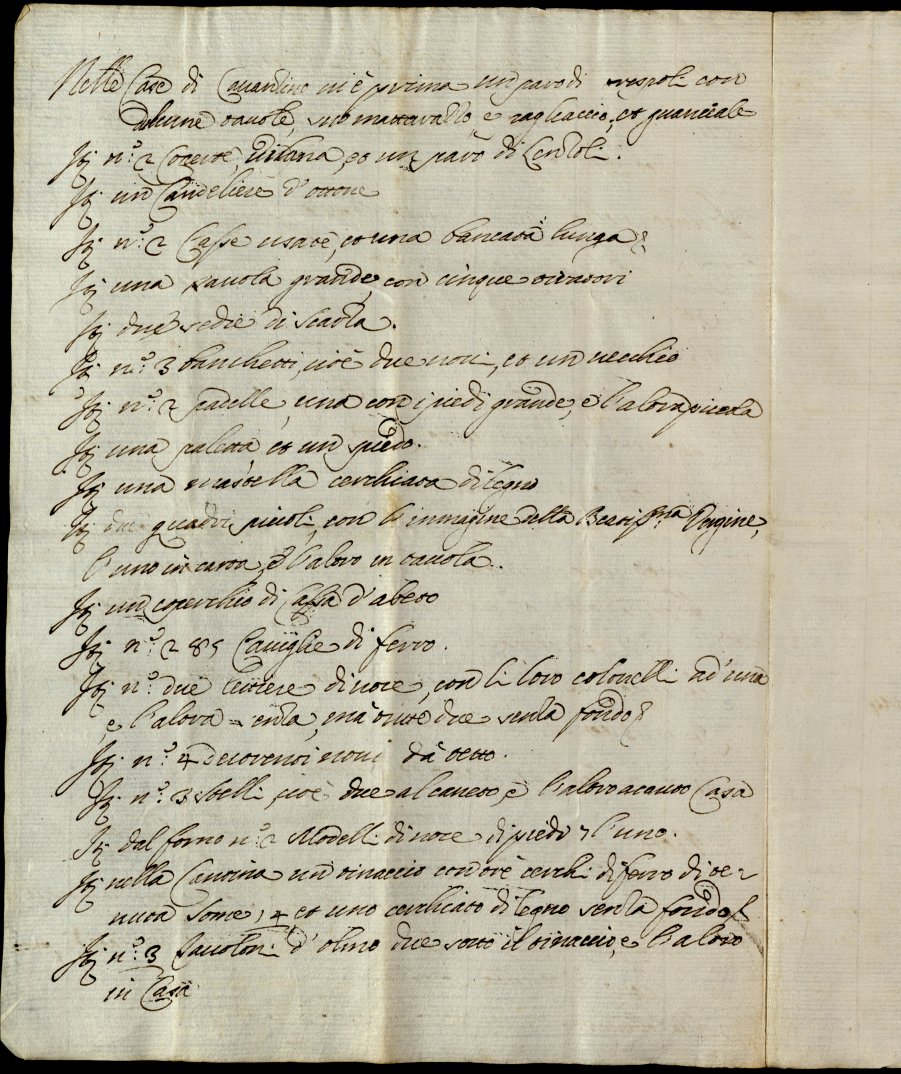 Nelle Case di Cavardino vi è prima un paro di trespoli con
alcune tavole, un mattarazzo e pagliaccio, et guanciale
Itt. n.º 2 Coperte, et un paro di Lenzoli.
Itt. un Candeliere d'ottone
Itt. n.º 2 Casse usate, et una bancata lunga
Itt. una tavola grande, con cinque tiratori
Itt. due sedie di scarza.
Itt. n.º 3 banchetti, cioè due novi, et un vecchio
Itt. n.º 2 padelle una con i piedi grande, e l'altra piccola
Itt. una paletta et un spiedo.
Itt. una mastella cerchiata di legno
Itt. due quadri piccoli, con l'immagine della Beatiss.ma Vergine,
l'uno in carta, e l'altro in tavola.
Itt. un coperchio di Cassa d'abeto
Itt. n.º 285 Caviglie di ferro.
Itt. n.º due lettiere di noce, con li loro colonelli ad' una
e l'altra senza, mà tutte due senza fondo
Itt. n.º 4 novi dà tetto.
Itt. n.º 3 stelli, cioè due al caneto, e l'altro acanto Casa
Itt. dal forno n.º 2 Modelli di noce di piedi 7 l'uno.
Itt. nella Cantina un tinaccio con trè cerchi di ferro di te-
nuta some 14 et uno cerchiato di legno senza fondo
Itt. n.º 3 Tavoloni d'olmo due sotto il tinaccio, e l'altro
in Casa